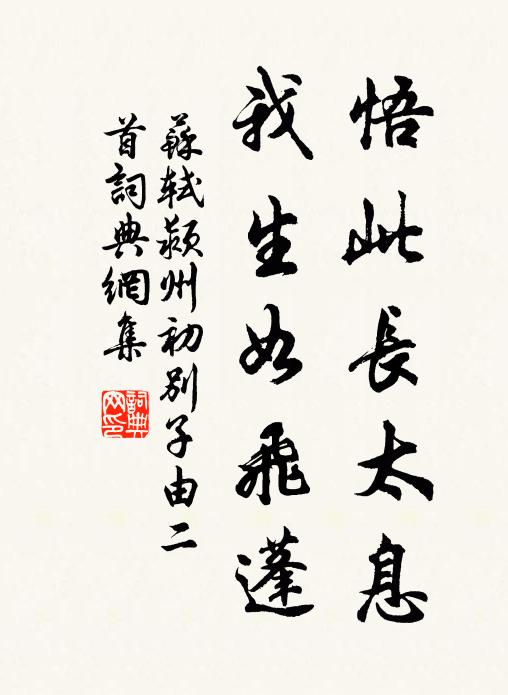 悟此長太息
我生如飛蓬
蘇軾潁州初別子由二
首詞典網集
詞典網印